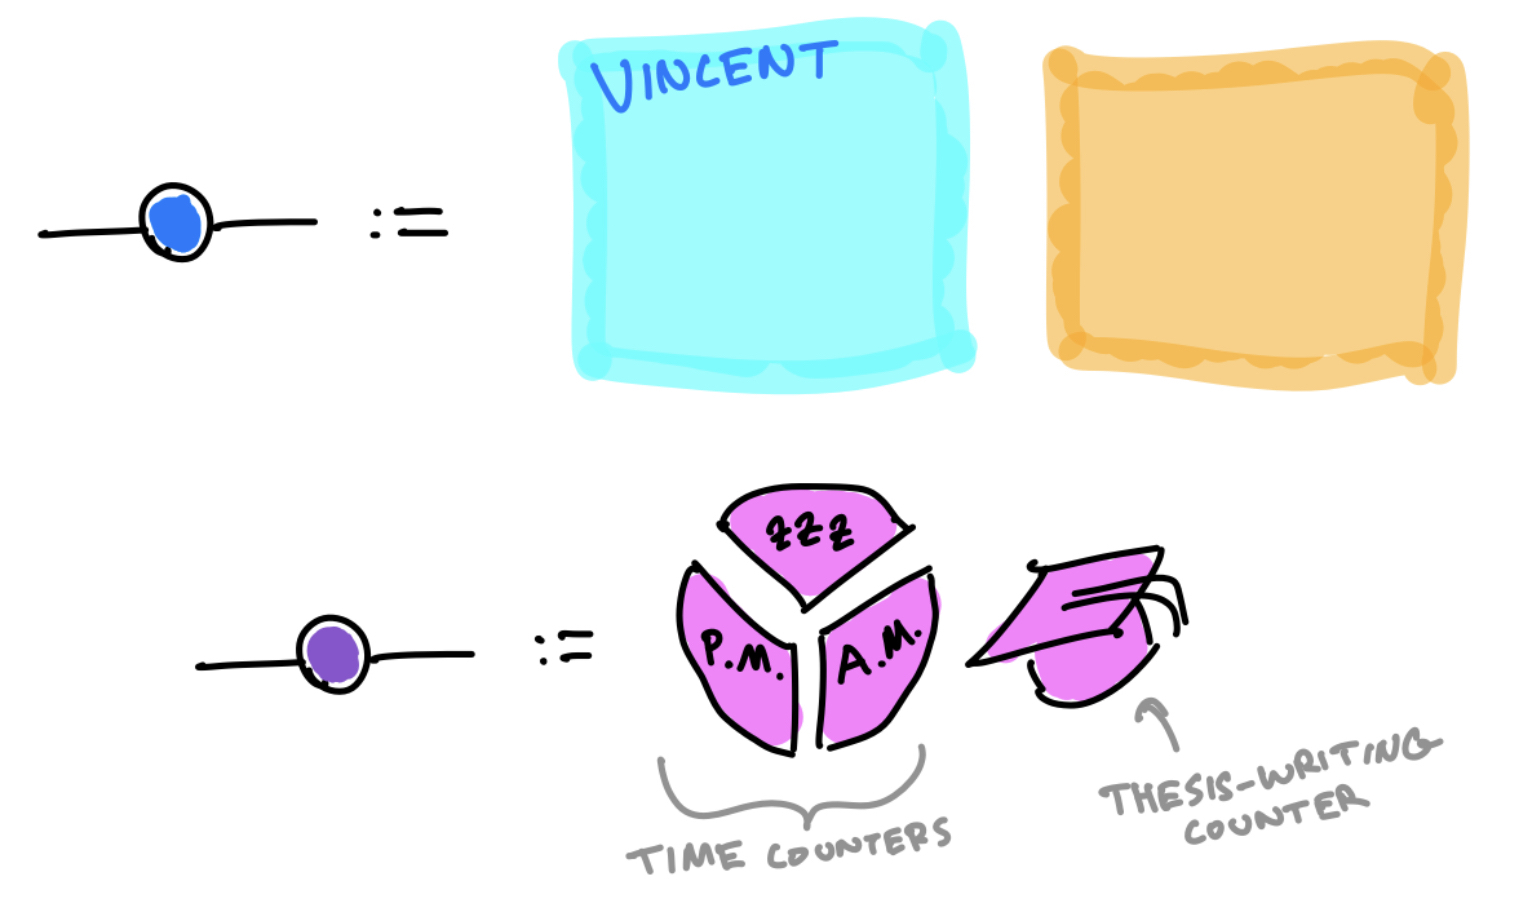 VINCENT
:=
ZZZ
:=
P.M.
A.M.
TIME COUNTERS
THESIS-WRITING
COUNTER